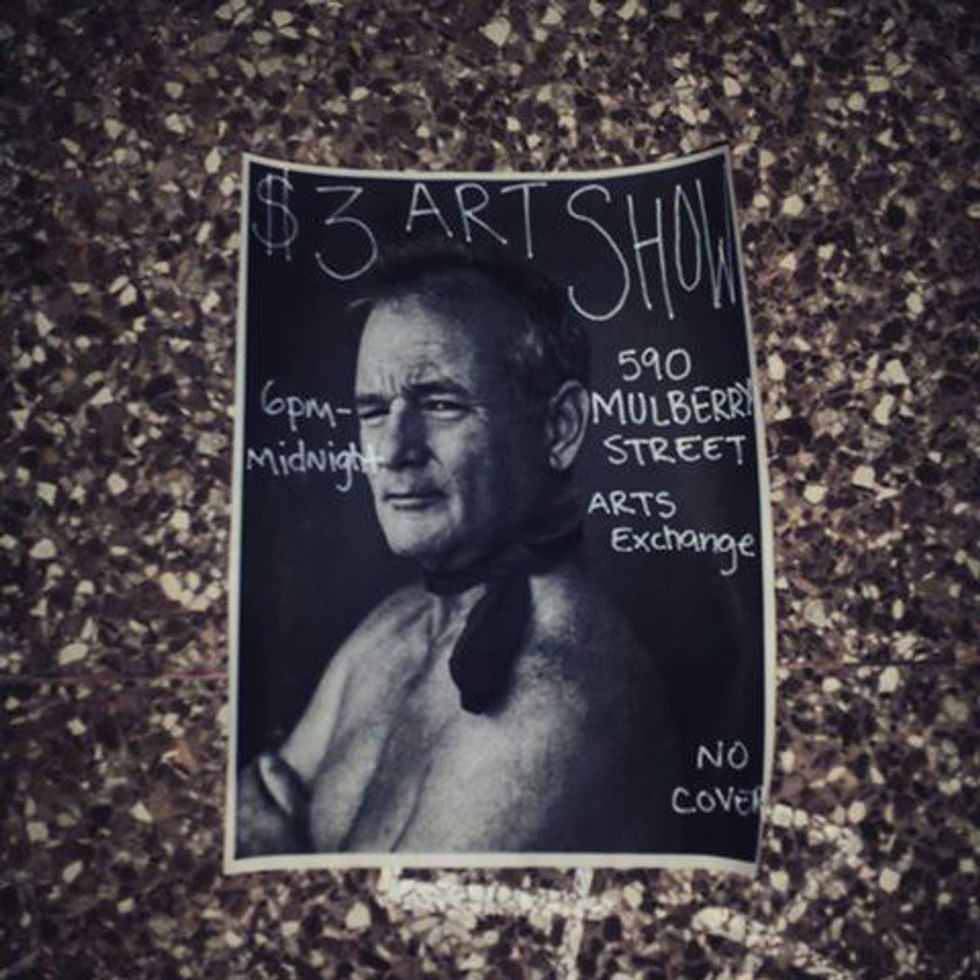 $3 ART SHOW
6pm-
Midnight
590
MULBERRY
STREET
ARTS
Exchange
NO
COVER